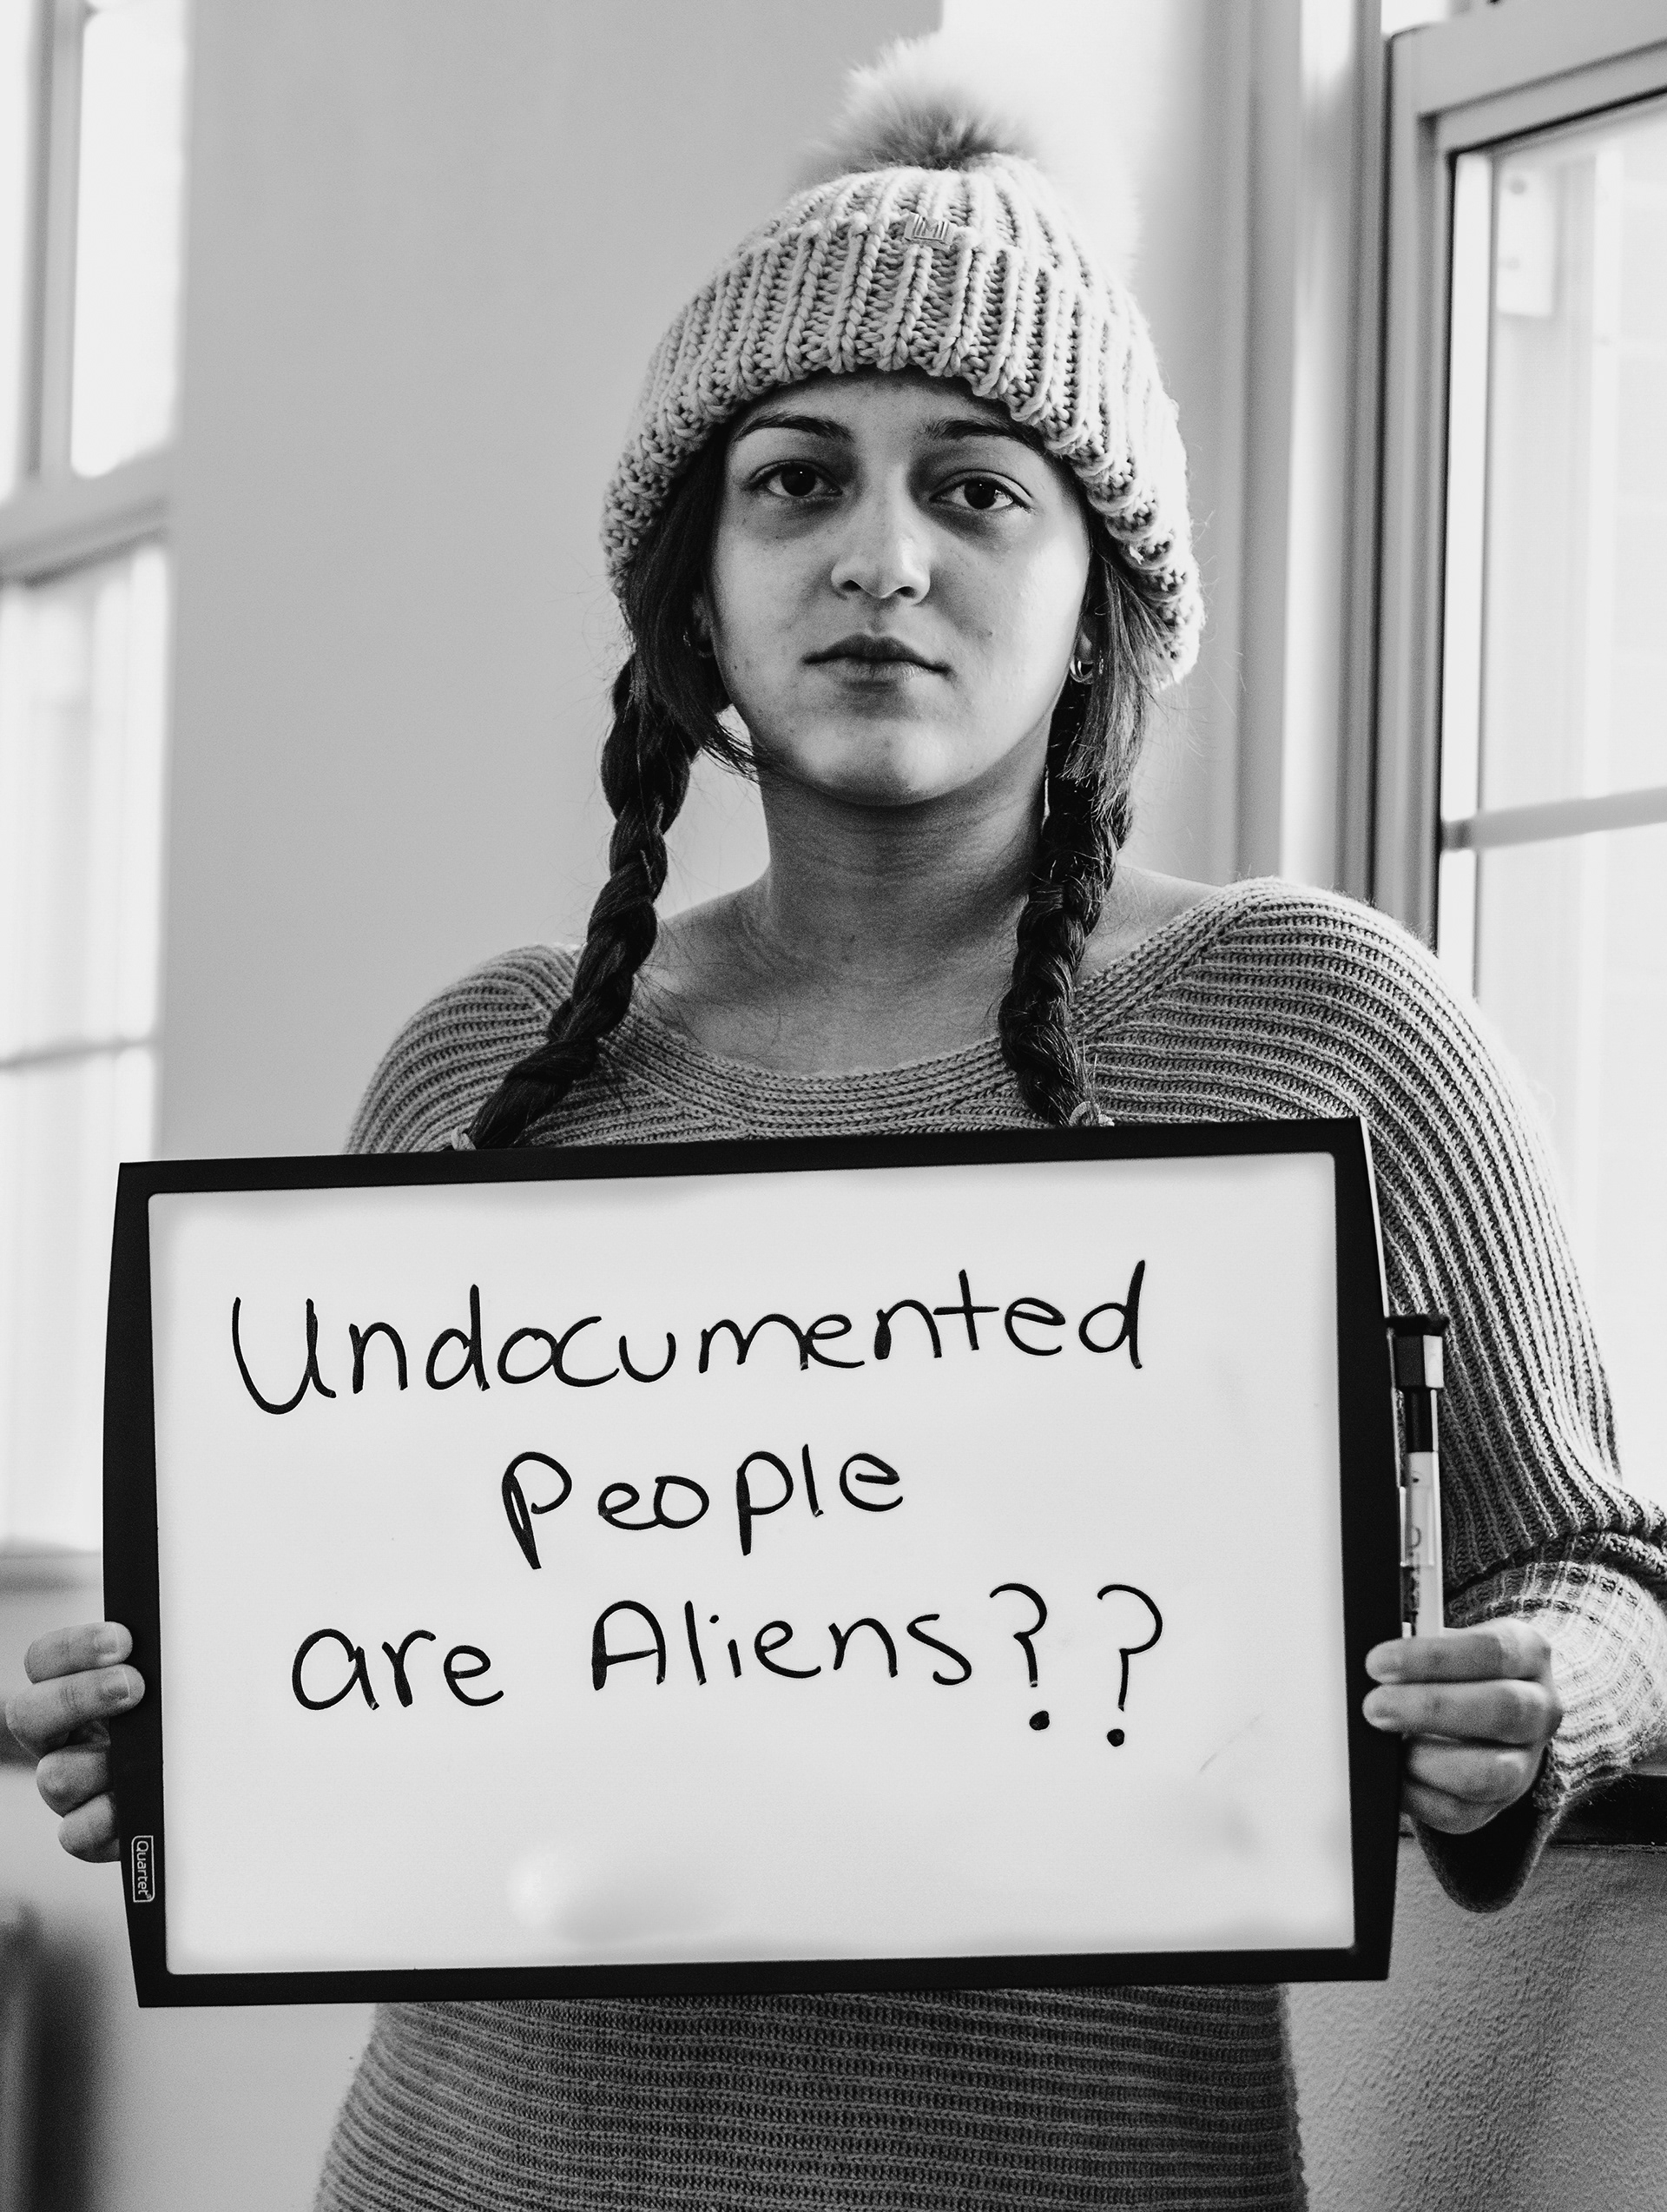 Undocumented
People
are Aliens??
Quartet